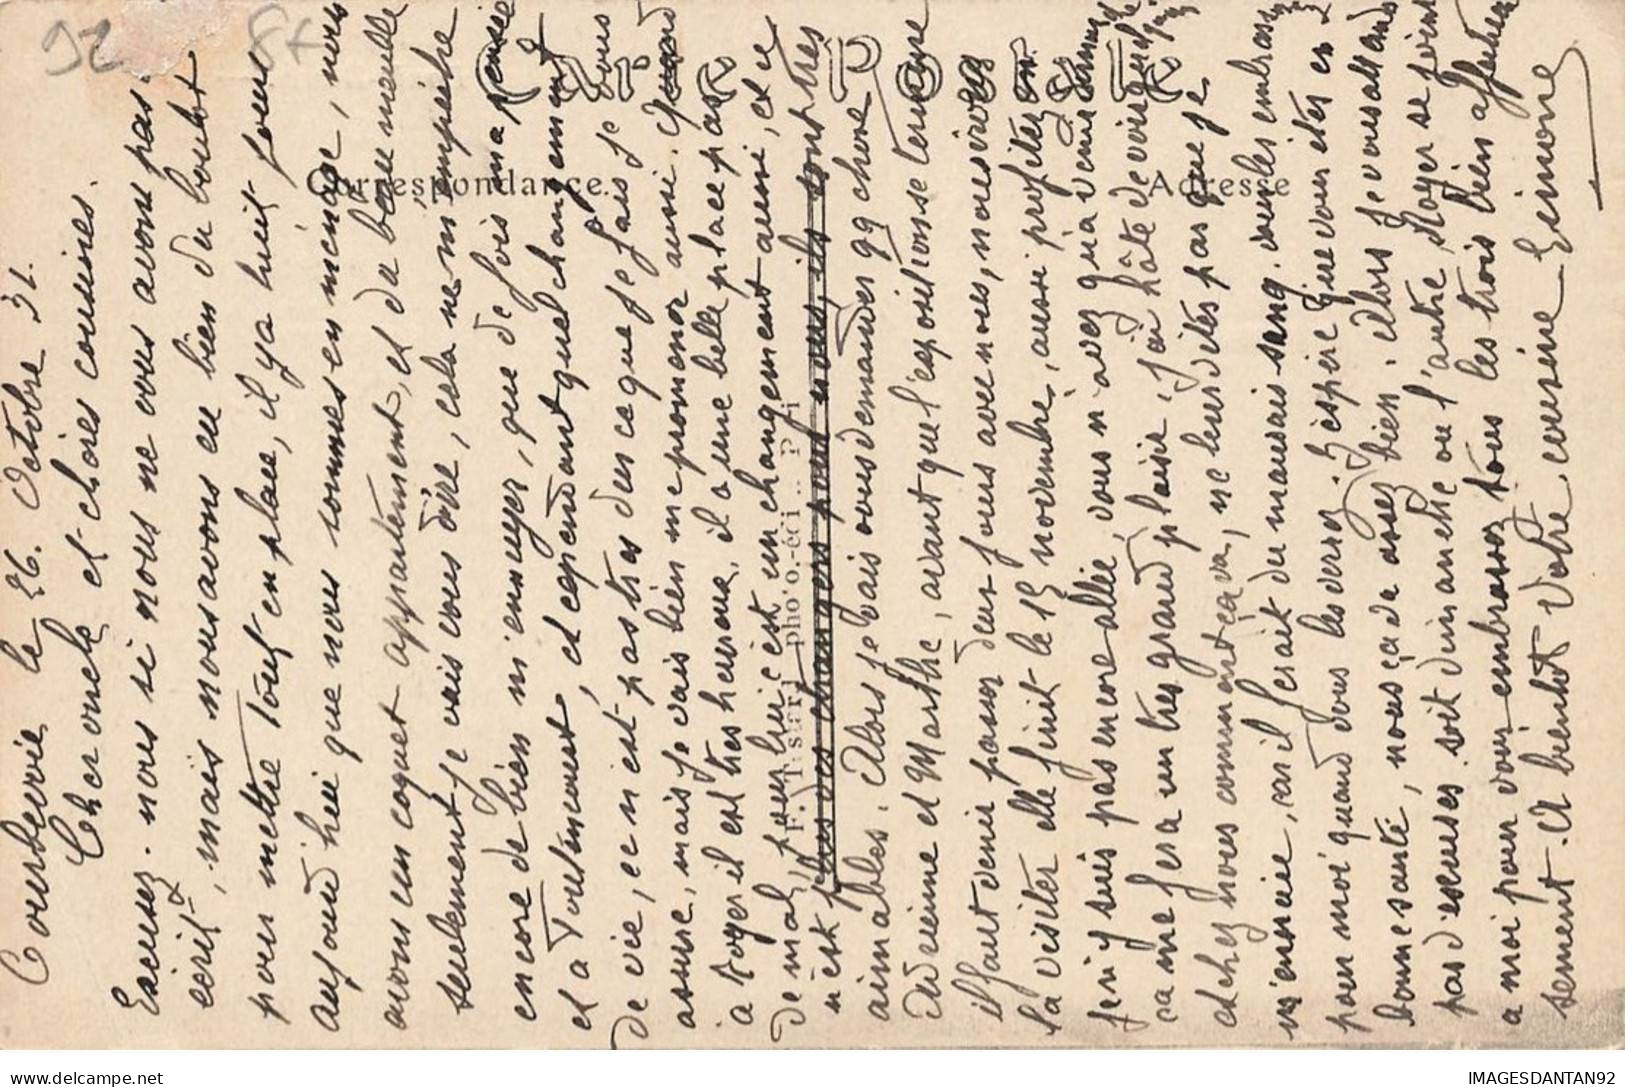 92
8f
Carte Postale
Correspondance.
Adresse
Courbevoie le 26. Octobre 31.
Cher oncle et chères cousines.
Excusez-nous si nous ne vous avons pas
écrit, mais nous avons eu bien du boulot
pour mettre tout en place, il y a huit jours
aujourd'hui que nous sommes en ménage, nous
avons un coquet appartement, et du beau meuble
seulement je vais vous dire, cela ne m'empêche
encore de bien m'ennuyer, que de fois ma pensée
et a Toutencourt, et cependant quel changement
de vie, ce n'est pas très dur ce que je fais je vous
assure, mais je vais bien me promener aussi. Quand
à Roger il est très heureux, il a une belle place pas
de mal, pour lui c'est un changement aussi, et ce
n'est plus des étrangers pour nous, ils sont très
aimables. Alors je vais vous demander qq chose
Adrienne et Marthe, avant que l'exposition se termine
il faut venir passer deux jours avec nous, nous irons
la visiter elle finit le 15 novembre, aussi profitez en
j'en y suis pas encore allée, vous n'avez qu'a venir
ça me fera un très grand plaisir, j'ai hâte de voir
chez nous comment ça va, ne leur dites pas que je
m'ennuie, car il ferait du mauvais sang,
pour moi quand vous les verrez. J'espère que vous êtes en
bonne santé, nous ça va assez bien. Alors je vous attends
pas d'excuses soit dimanche ou l'autre, Roger se joint
a moi pour vous embrasser tous les trois bien affectueu
sement. A bientôt Votre cousine Simone
IMAGESDANTAN92